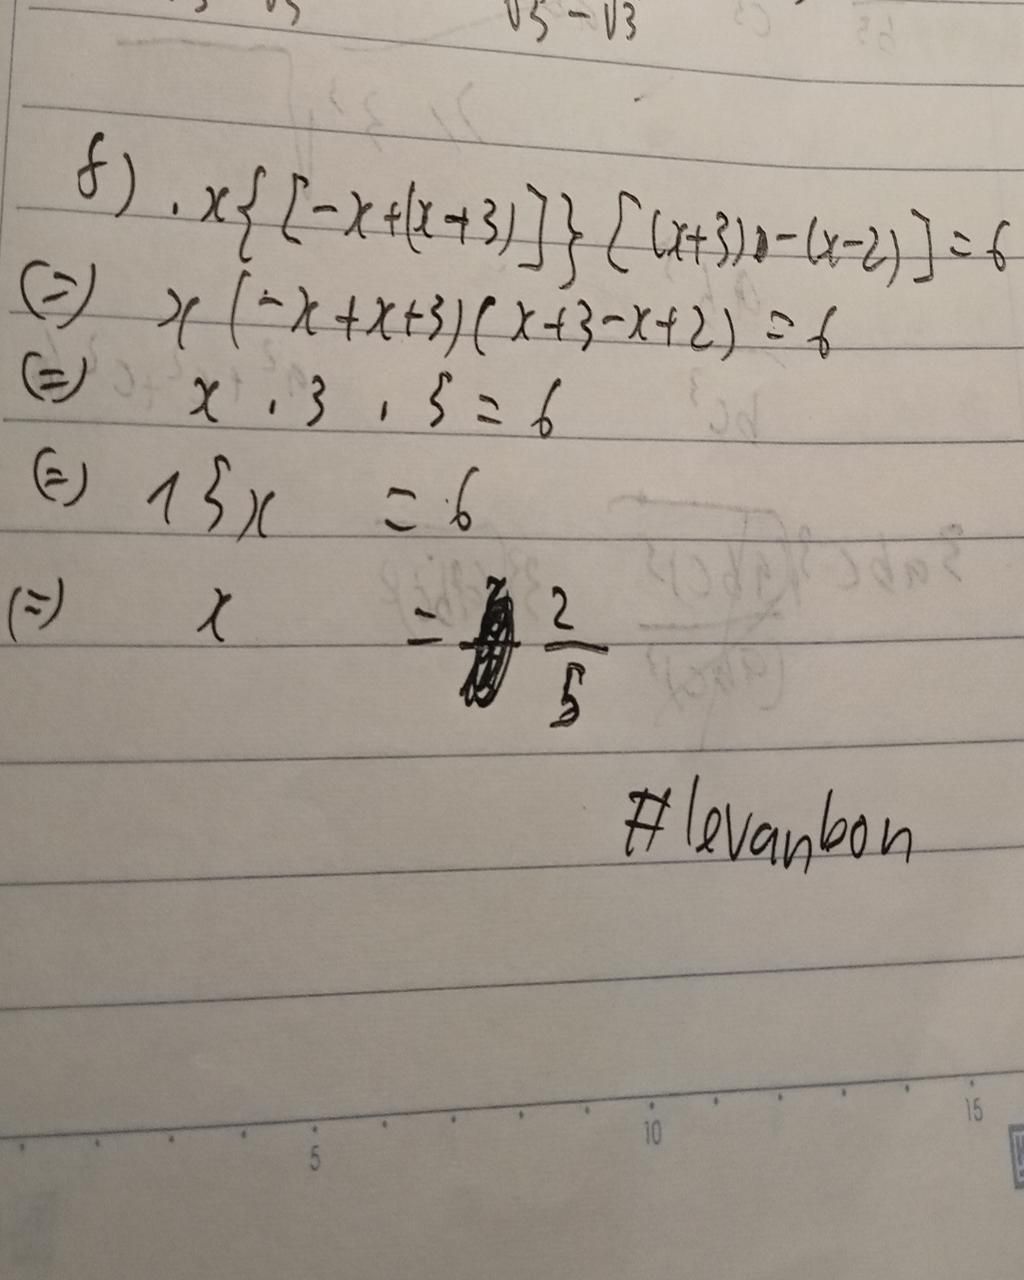 √5 - √3
f) . x{[-x+(x+3)]} [(x+3) - (x-2)] = 6
(=) x (-x+x+3)(x+3-x+2) = 6
(=) x . 3 . 5 = 6
(=) 15x = 6
(=) x = 2/5
#levanbon
5 10 15